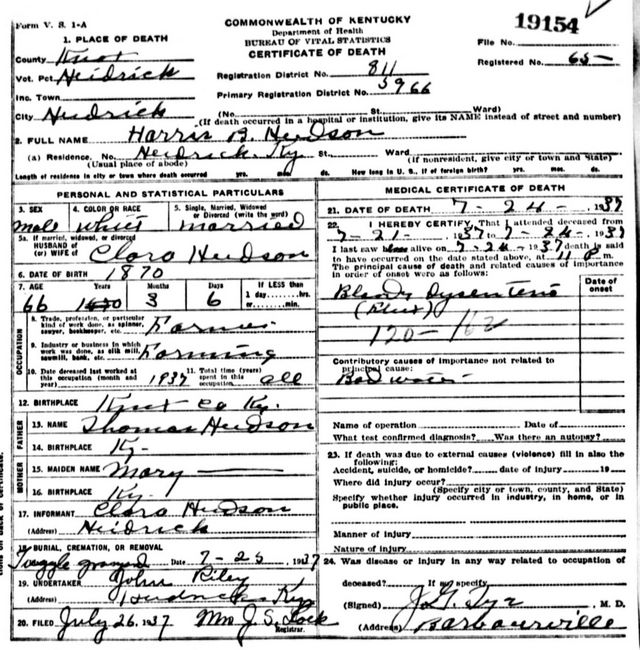 Form V. S. 1-A
COMMONWEALTH OF KENTUCKY
Department of Health
BUREAU OF VITAL STATISTICS
CERTIFICATE OF DEATH
19154
File No.
Registered No. 65-
1. PLACE OF DEATH
County Knox
Vot. Pct. Heidrick
Inc. Town
City Heidrick
Registration District No. 811
Primary Registration District No. 5966
(No. St. Ward)
(If death occurred in a hospital or institution, give its NAME instead of street and number)
2. FULL NAME Harris B. Hudson
(a) Residence. No. Heidrick, Ky. St. Ward
(Usual place of abode) (If nonresident, give city or town and State)
Length of residence in city or town where death occurred yrs. mos. ds. How long in U. S., if of foreign birth? yrs. mos. ds.
PERSONAL AND STATISTICAL PARTICULARS
3. SEX 4. COLOR OR RACE 5. Single, Married, Widowed
or Divorced (write the word)
Male White Married
5a. If married, widowed, or divorced
HUSBAND of
(or) WIFE of Clara Hudson
6. DATE OF BIRTH 1870
7. AGE Months Days If LESS than
66 3 6 1 day,....hrs.
or.....min.
OCCUPATION
8. Trade, profession, or particular
kind of work done, as spinner,
sawyer, bookkeeper, etc. Farmer
9. Industry or business in which
work was done, as silk mill,
sawmill, bank, etc. Farming
10. Date deceased last worked at
this occupation (month and
year) 1937
11. Total time (years)
spent in this
occupation all
12. BIRTHPLACE Knox Co Ky.
FATHER
13. NAME Thomas Hudson
14. BIRTHPLACE Ky-
MOTHER
15. MAIDEN NAME Mary
16. BIRTHPLACE Ky
17. INFORMANT Clara Hudson
(Address) Heidrick
18. BURIAL, CREMATION, OR REMOVAL
Date 7-25 1937
19. UNDERTAKER John Riley
(Address) Heidrick Ky
20. FILED July 26, 1937 Mrs J. S. Lock
Registrar.
MEDICAL CERTIFICATE OF DEATH
21. DATE OF DEATH 7-24-, 1937
22. I HEREBY CERTIFY, That I attended deceased from
7-21-1937 to 7-24-, 1937
I last saw alive on 7-24-1937 death is said
to have occurred on the date stated above, at 11 m.
The principal cause of death and related causes of importance
in order of onset were as follows:
Date of
onset
Bloody Dysentery
(Flux)
120-162
Contributory causes of importance not related to
principal cause:
Bad water
Name of operation Date of
What test confirmed diagnosis? Was there an autopsy?
23. If death was due to external causes (violence) fill in also the
following:
Accident, suicide, or homicide? date of injury 19
Where did injury occur?
(Specify city or town, county, and State)
Specify whether injury occurred in industry, in home, or in
public place.
Manner of injury
Nature of injury
24. Was disease or injury in any way related to occupation of
deceased? If so, specify
(Signed) M. D.
(Address) Barbourville